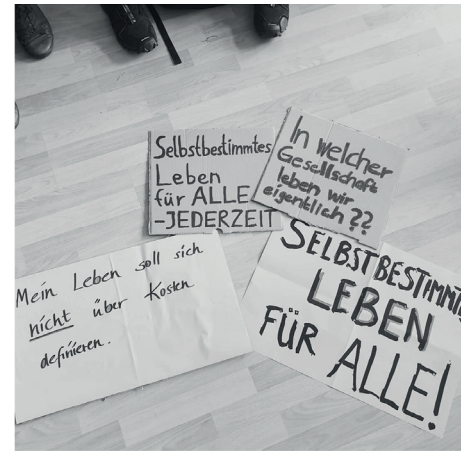 Selbstbestimmtes
Leben
für ALLE
-JEDERZEIT
In welcher
Gesellschaft
leben wir
eigentlich ??
Mein Leben soll sich
nicht über Kosten
definieren.
SELBSTBESTIMMTES
LEBEN
FÜR ALLE!